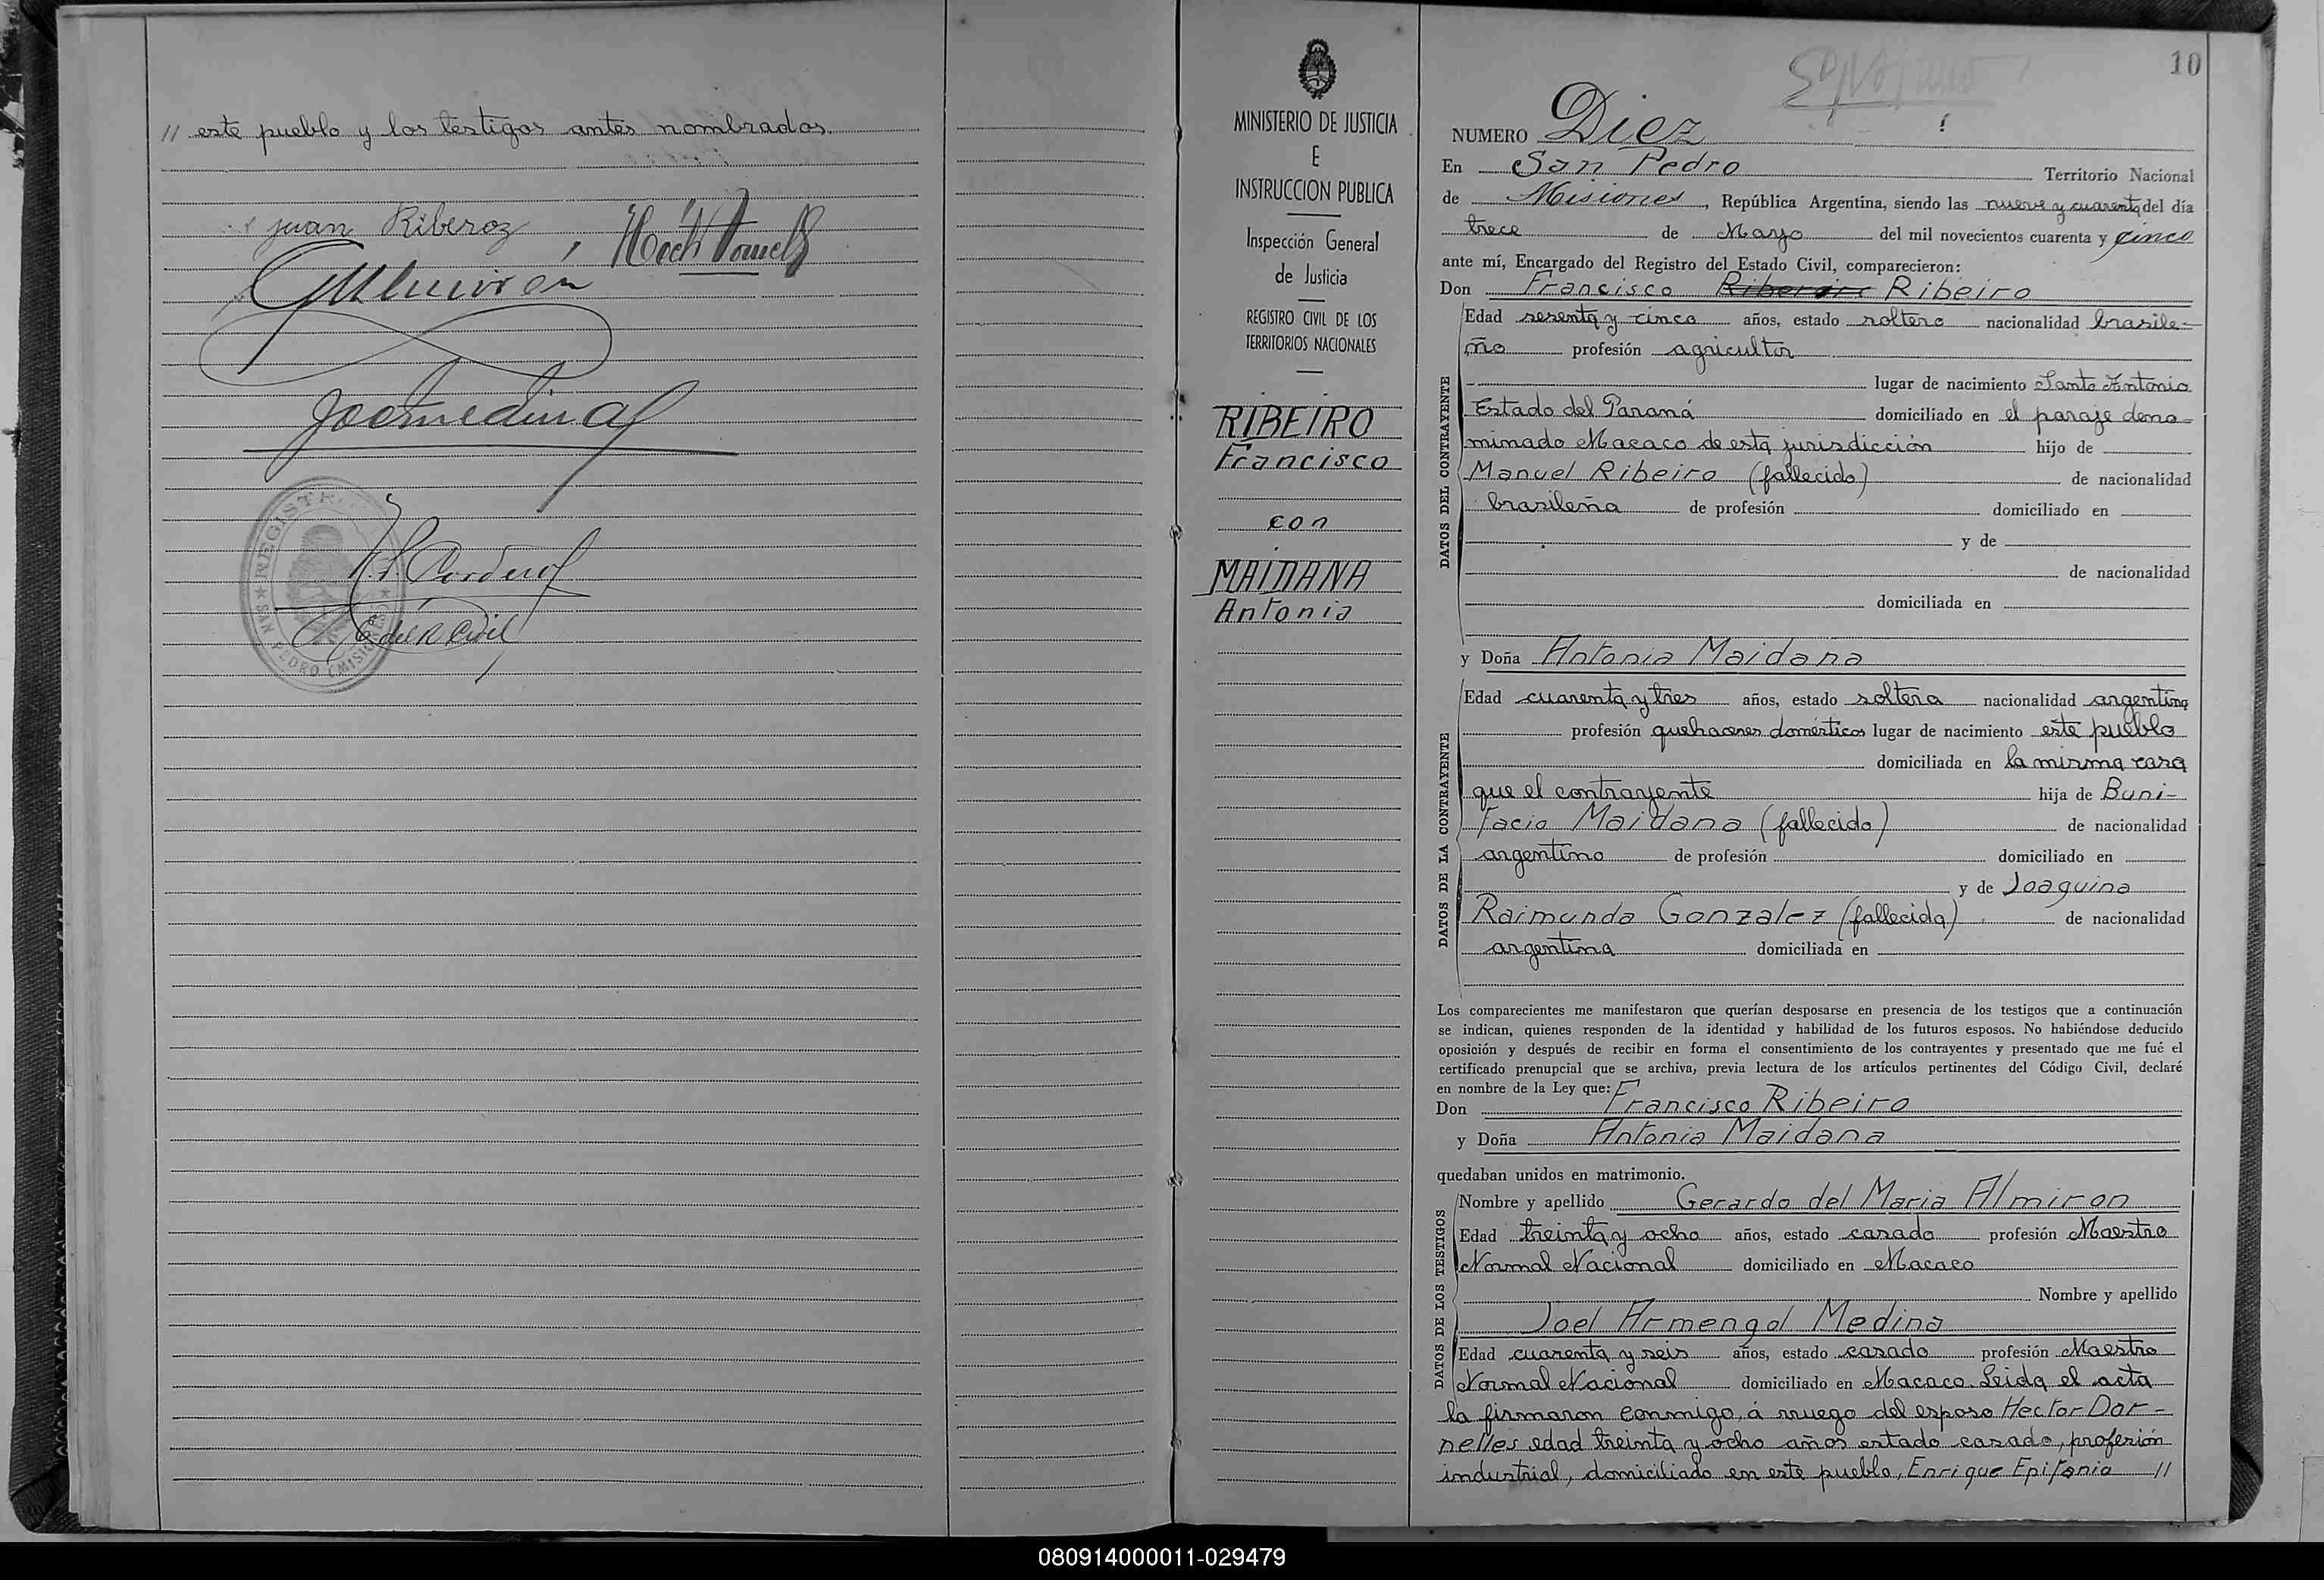 // este pueblo y los testigos antes nombrados.
Juan Riberoz
Joelmedina
REGISTR
SAN PEDRO (MISIO
E. del R. Civil
MINISTERIO DE JUSTICIA
E
INSTRUCCION PUBLICA
Inspección General
de Justicia
REGISTRO CIVIL DE LOS
TERRITORIOS NACIONALES
RIBEIRO
Francisco
con
MAIDANA
Antonia
10
NUMERO Diez
En San Pedro Territorio Nacional
de Misiones, República Argentina, siendo las nueve y cuarenta del día
trece de Mayo del mil novecientos cuarenta y cinco
ante mí, Encargado del Registro del Estado Civil, comparecieron:
Don Francisco Ribeiro
DATOS DEL CONTRAYENTE
Edad sesenta y cinco años, estado soltero nacionalidad brasile-
ño profesión agricultor
lugar de nacimiento Santo Antonio
Estado del Paraná domiciliado en el paraje deno-
minado Macaco de esta jurisdicción hijo de
Manuel Ribeiro (fallecido) de nacionalidad
brasileña de profesión domiciliado en
y de
de nacionalidad
domiciliada en
y Doña Antonia Maidana
DATOS DE LA CONTRAYENTE
Edad cuarenta y tres años, estado soltera nacionalidad argentina
profesión quehaceres domésticos lugar de nacimiento este pueblo
domiciliada en la misma casa
que el contrayente hija de Buni-
facio Maidana (fallecido) de nacionalidad
argentino de profesión domiciliado en
y de Joaquina
Raimunda Gonzalez (fallecida) de nacionalidad
argentina domiciliada en
Los comparecientes me manifestaron que querían desposarse en presencia de los testigos que a continuación
se indican, quienes responden de la identidad y habilidad de los futuros esposos. No habiéndose deducido
oposición y después de recibir en forma el consentimiento de los contrayentes y presentado que me fué el
certificado prenupcial que se archiva, previa lectura de los artículos pertinentes del Código Civil, declaré
en nombre de la Ley que:
Don Francisco Ribeiro
y Doña Antonia Maidana
quedaban unidos en matrimonio.
DATOS DE LOS TESTIGOS
Nombre y apellido Gerardo del Maria Almiron
Edad treinta y ocho años, estado casado profesión Maestro
Normal Nacional domiciliado en Macaco
Nombre y apellido
Joel Armengol Medina
Edad cuarenta y seis años, estado casado profesión Maestro
Normal Nacional domiciliado en Macaco. Leida el acta
la firmaron conmigo, á ruego del esposo Hector Dor-
nelles edad treinta y ocho años estado casado, profesión
industrial, domiciliado en este pueblo, Enrique Epifanio //
080914000011-029479